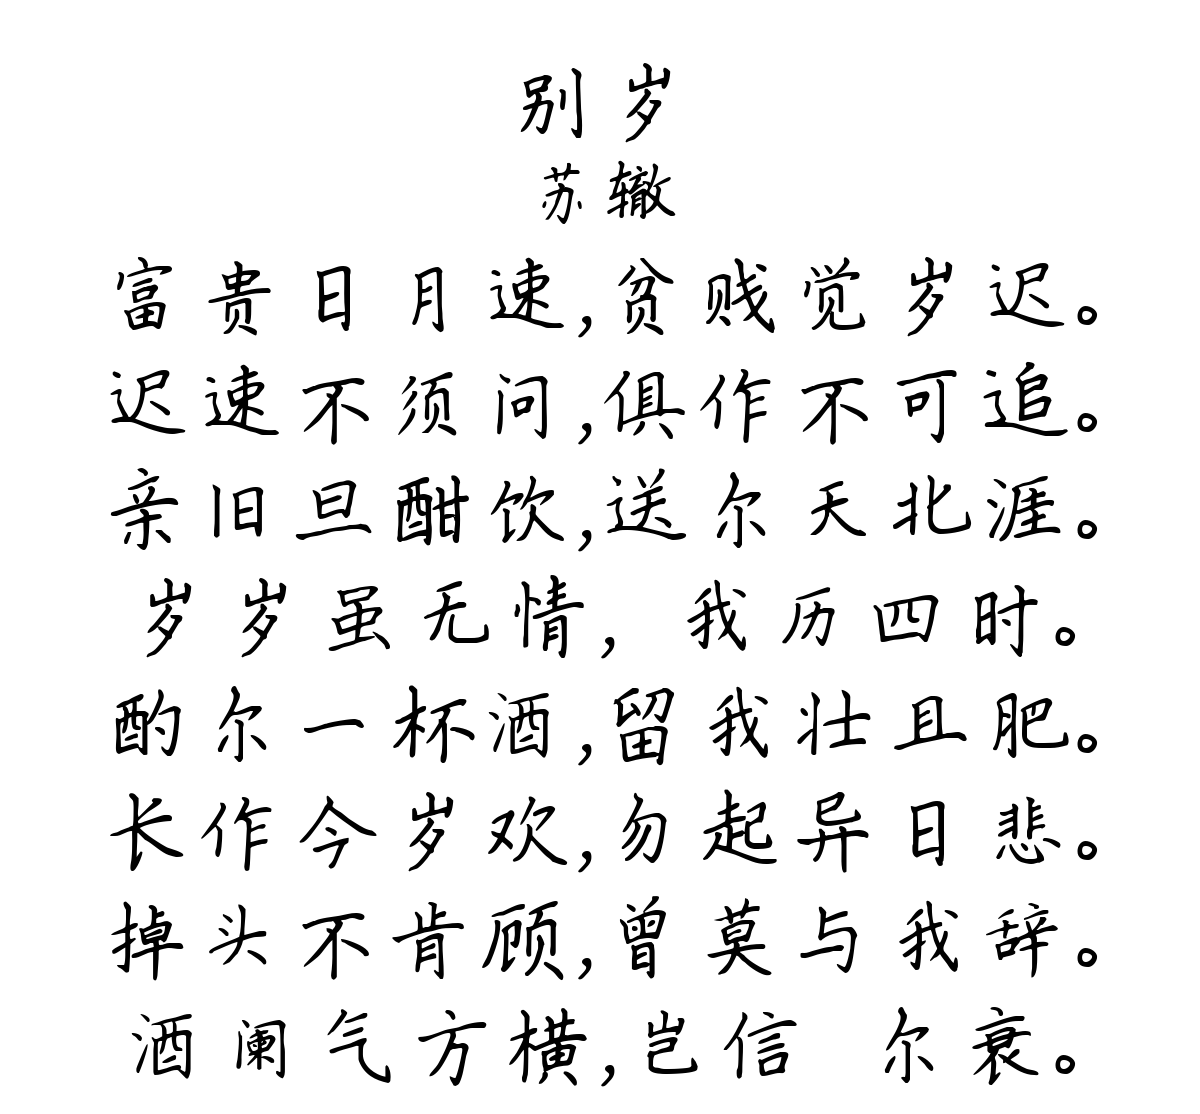 别岁
苏辙
富贵日月速,贫贱觉岁迟。
迟速不须问,俱作不可追。
亲旧旦酣饮,送尔天北涯。
岁岁虽无情,我历四时。
酌尔一杯酒,留我壮且肥。
长作今岁欢,勿起异日悲。
掉头不肯顾,曾莫与我辞。
酒阑气方横,岂信 尔衰。